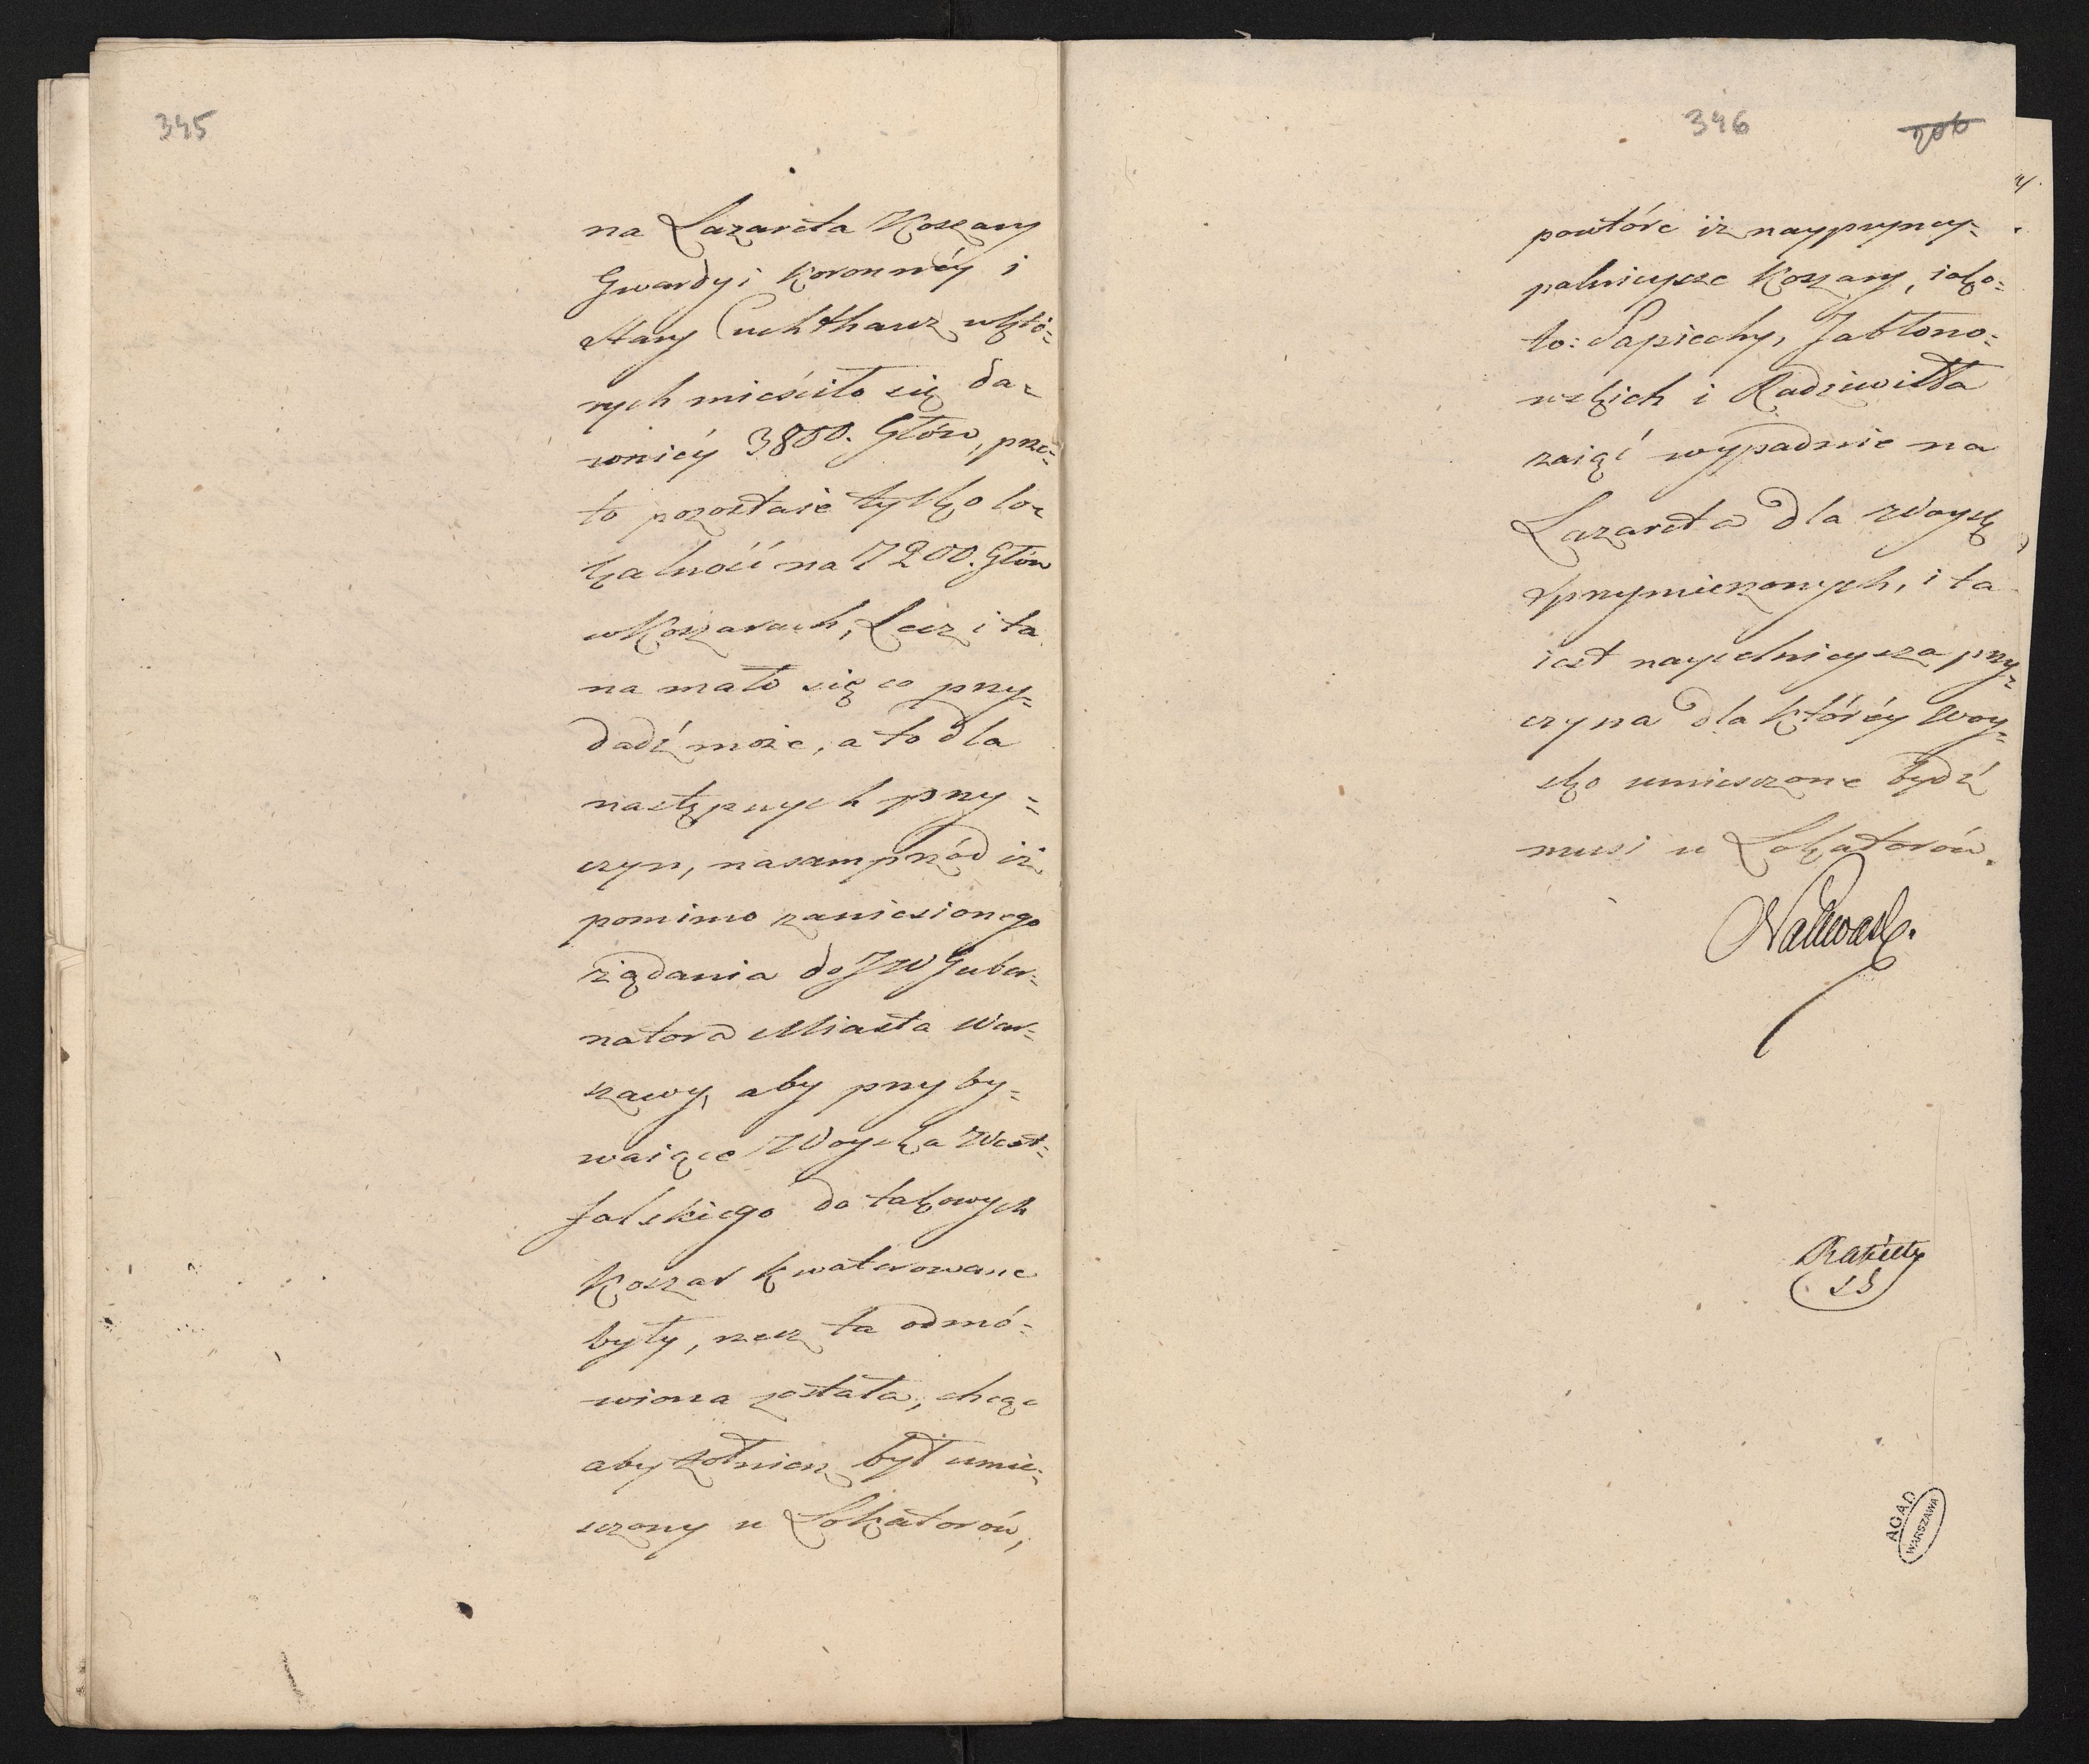 345
na Lazareta Koszary
Gwardyi Koronnéy i
stary Cuchthauz wktó=
rych mieściło się da=
wniéy 3800. Głów, prze=
to pozostaie tylko lo=
kalność na 7200. Głów
w Koszarach, Lecz i ta
na mało się co przy=
dadź może, a to dla
następnych przy=
czyn, nasamprzód iż
pomimo zaniesionego
żądania do JW Guber=
natora Miasta War=
szawy, aby przyby=
waiące Woyska West=
falskiego do takowych
Koszar kwaterowane
były, rzecz ta odmó=
wiona została, chcąc
aby żołnierz był umie=
szczony u Lokatorów,
346
206
powtóre iż naypryncy=
palnieysze Koszary, iako=
to: Sapiechy, Jabłono=
wskich i Radziwiłła
zaiąć wypadnie na
Lazareta dla Woysk
Sprzymierzonych, i ta
iest naycelnieysza przy=
czyna dla któréy Woy=
sko umieszczone bydź
musi u Lokatorów.
Nakwask.
AGAD
WARSZAWA